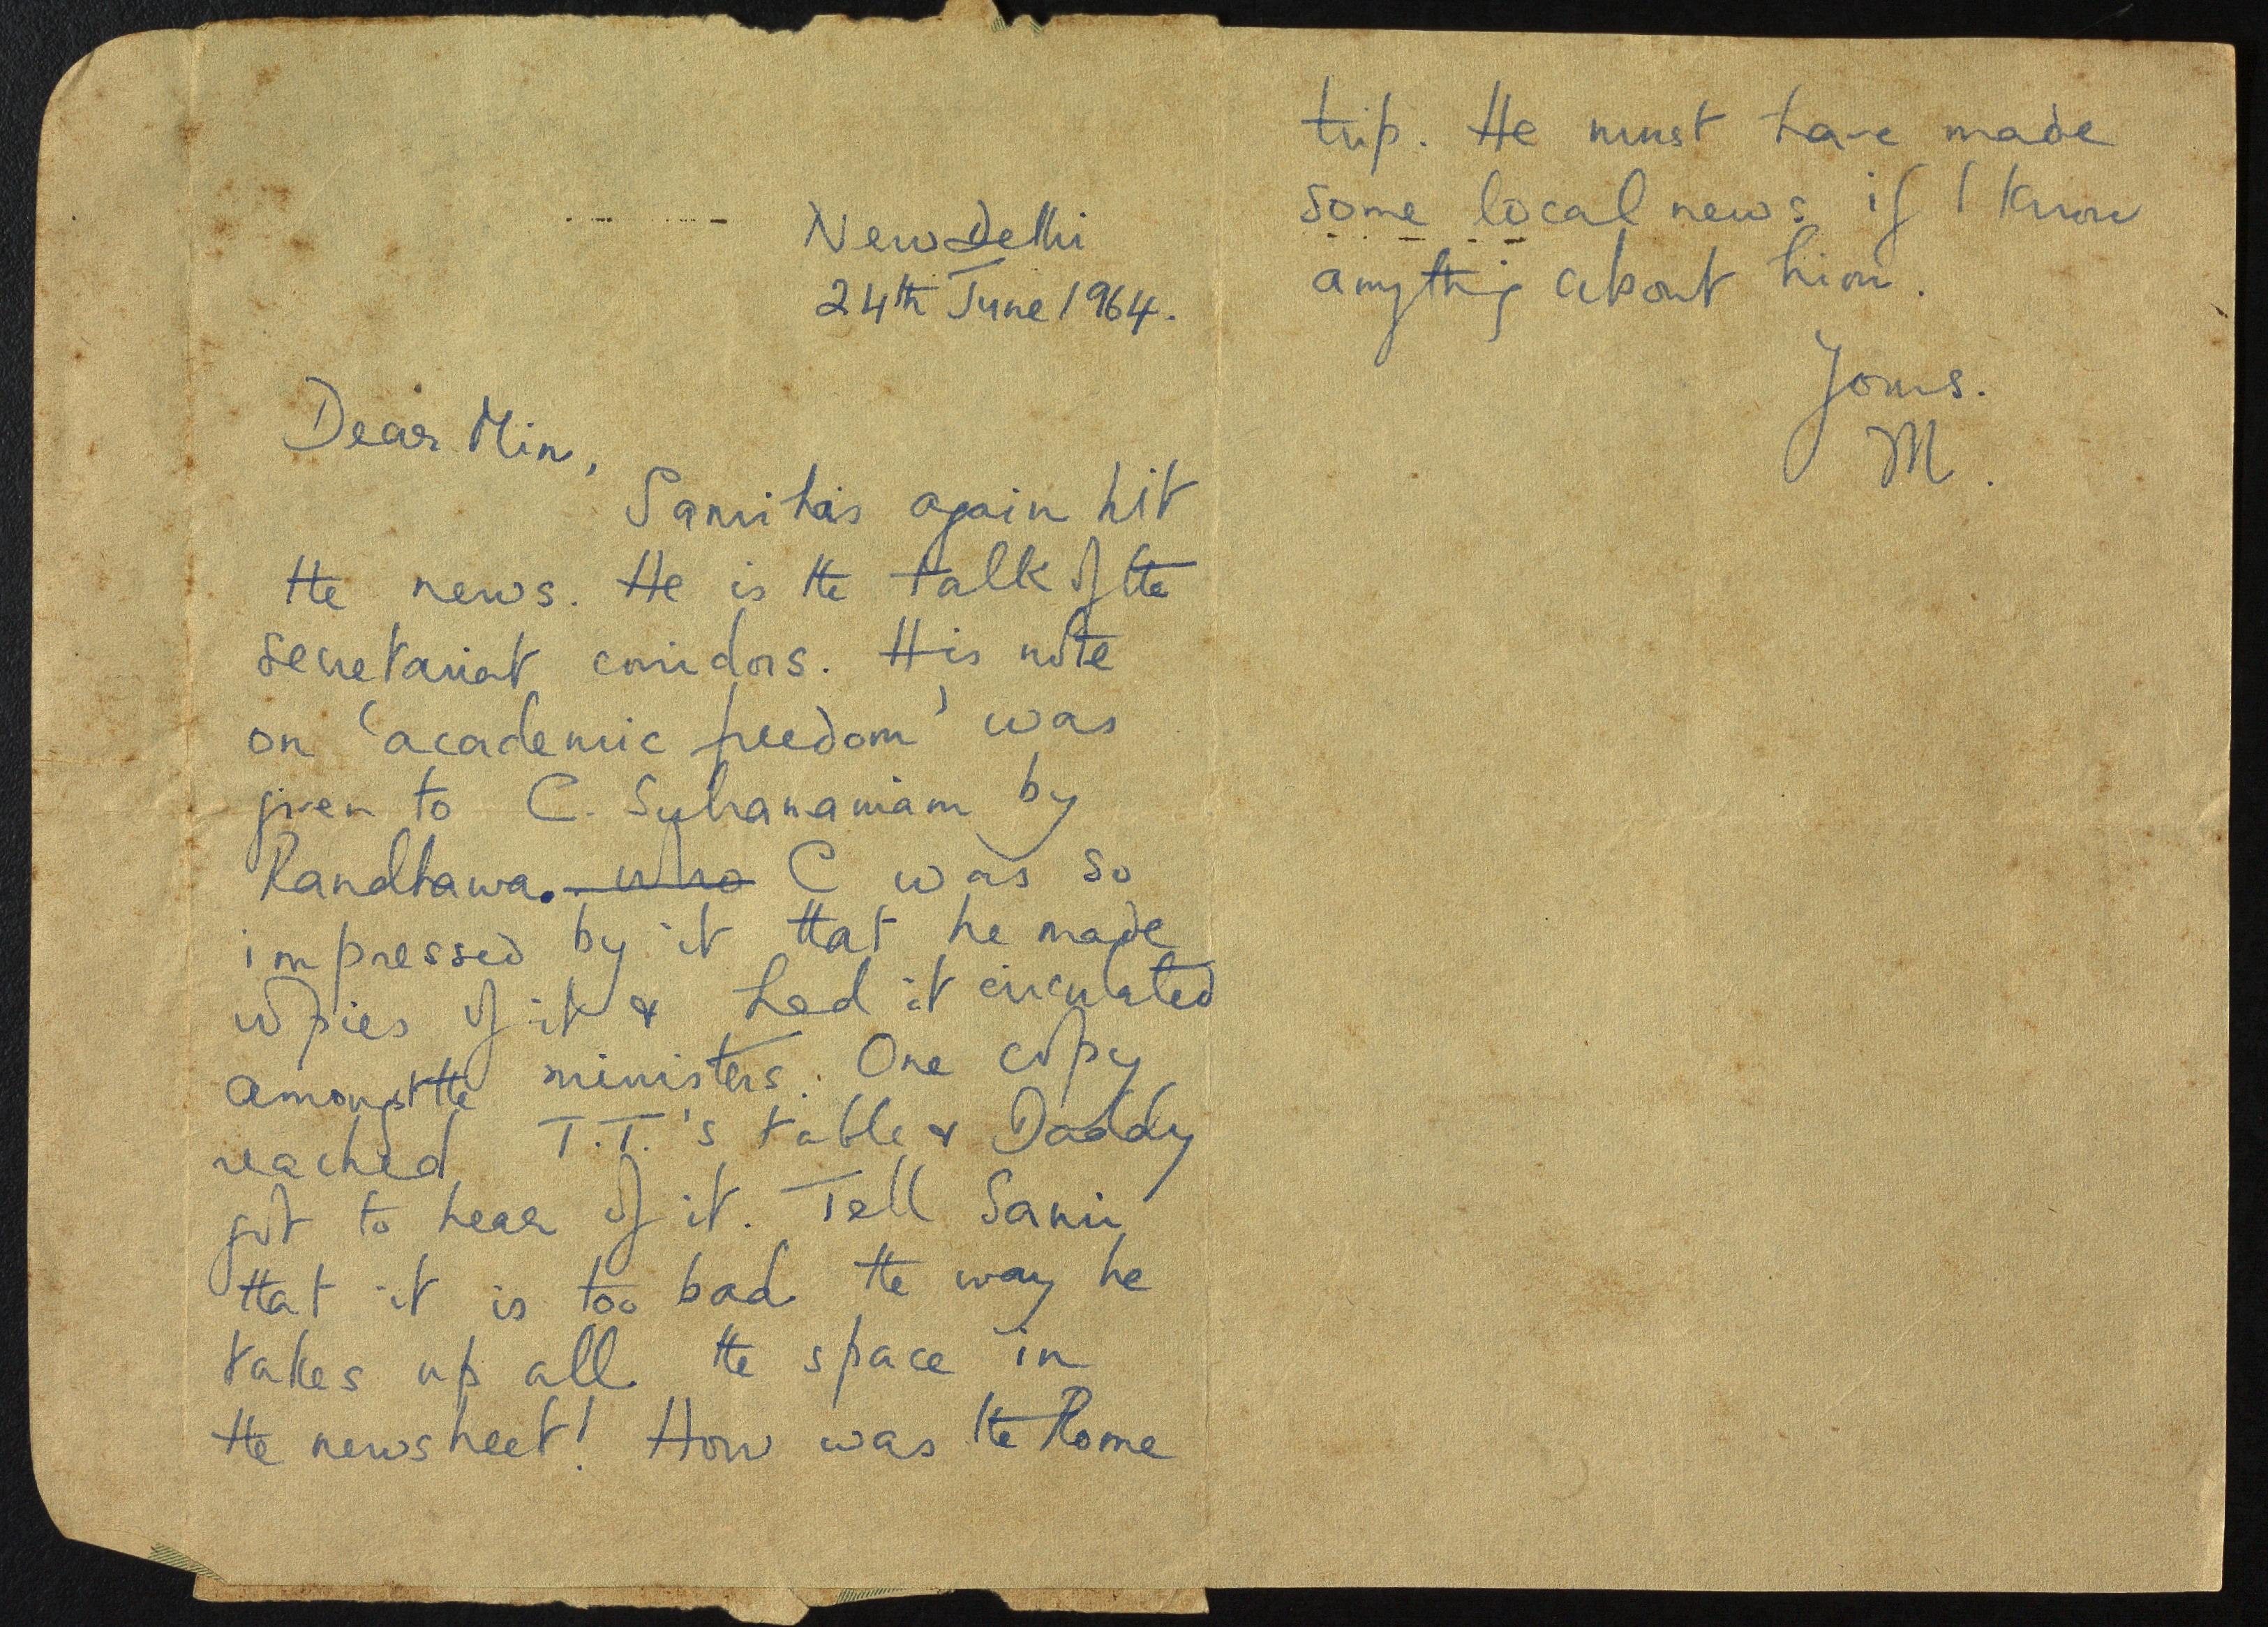 New Delhi
24th June 1964.
Dear Min,
Samir has again hit
the news. He is the talk of the
secretariat corridors. His note
on 'academic freedom' was
given to C. Subramaniam by
Randhawa. who C was so
impressed by it that he made
copies of it & had it circulated
amongst the ministers. One copy
reached T.T.'s table & Daddy
got to hear of it. Tell Samir
that it is too bad the way he
takes up all the space in
the newsheet! How was the Rome
trip. He must have made
some local news if I know
anything about him.
Yours.
M.